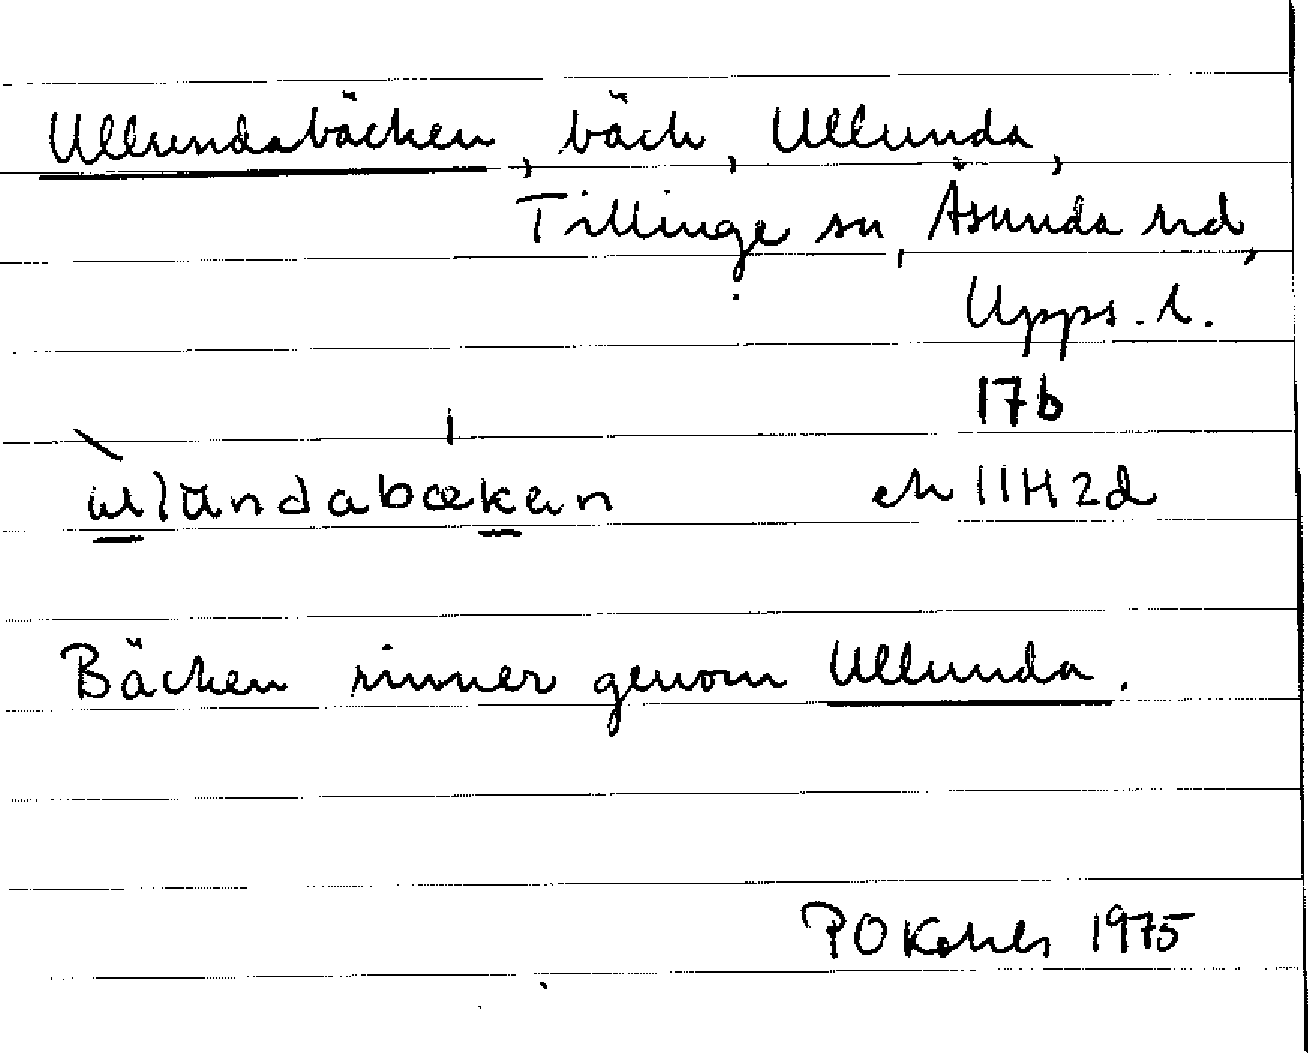 Ullundabäcken, bäck, Ullunda,
Tillinge sn, Åsunda hd,
Upps. l.
17b
ek 11H2d
Bäcken rinner genom Ullunda.
1975